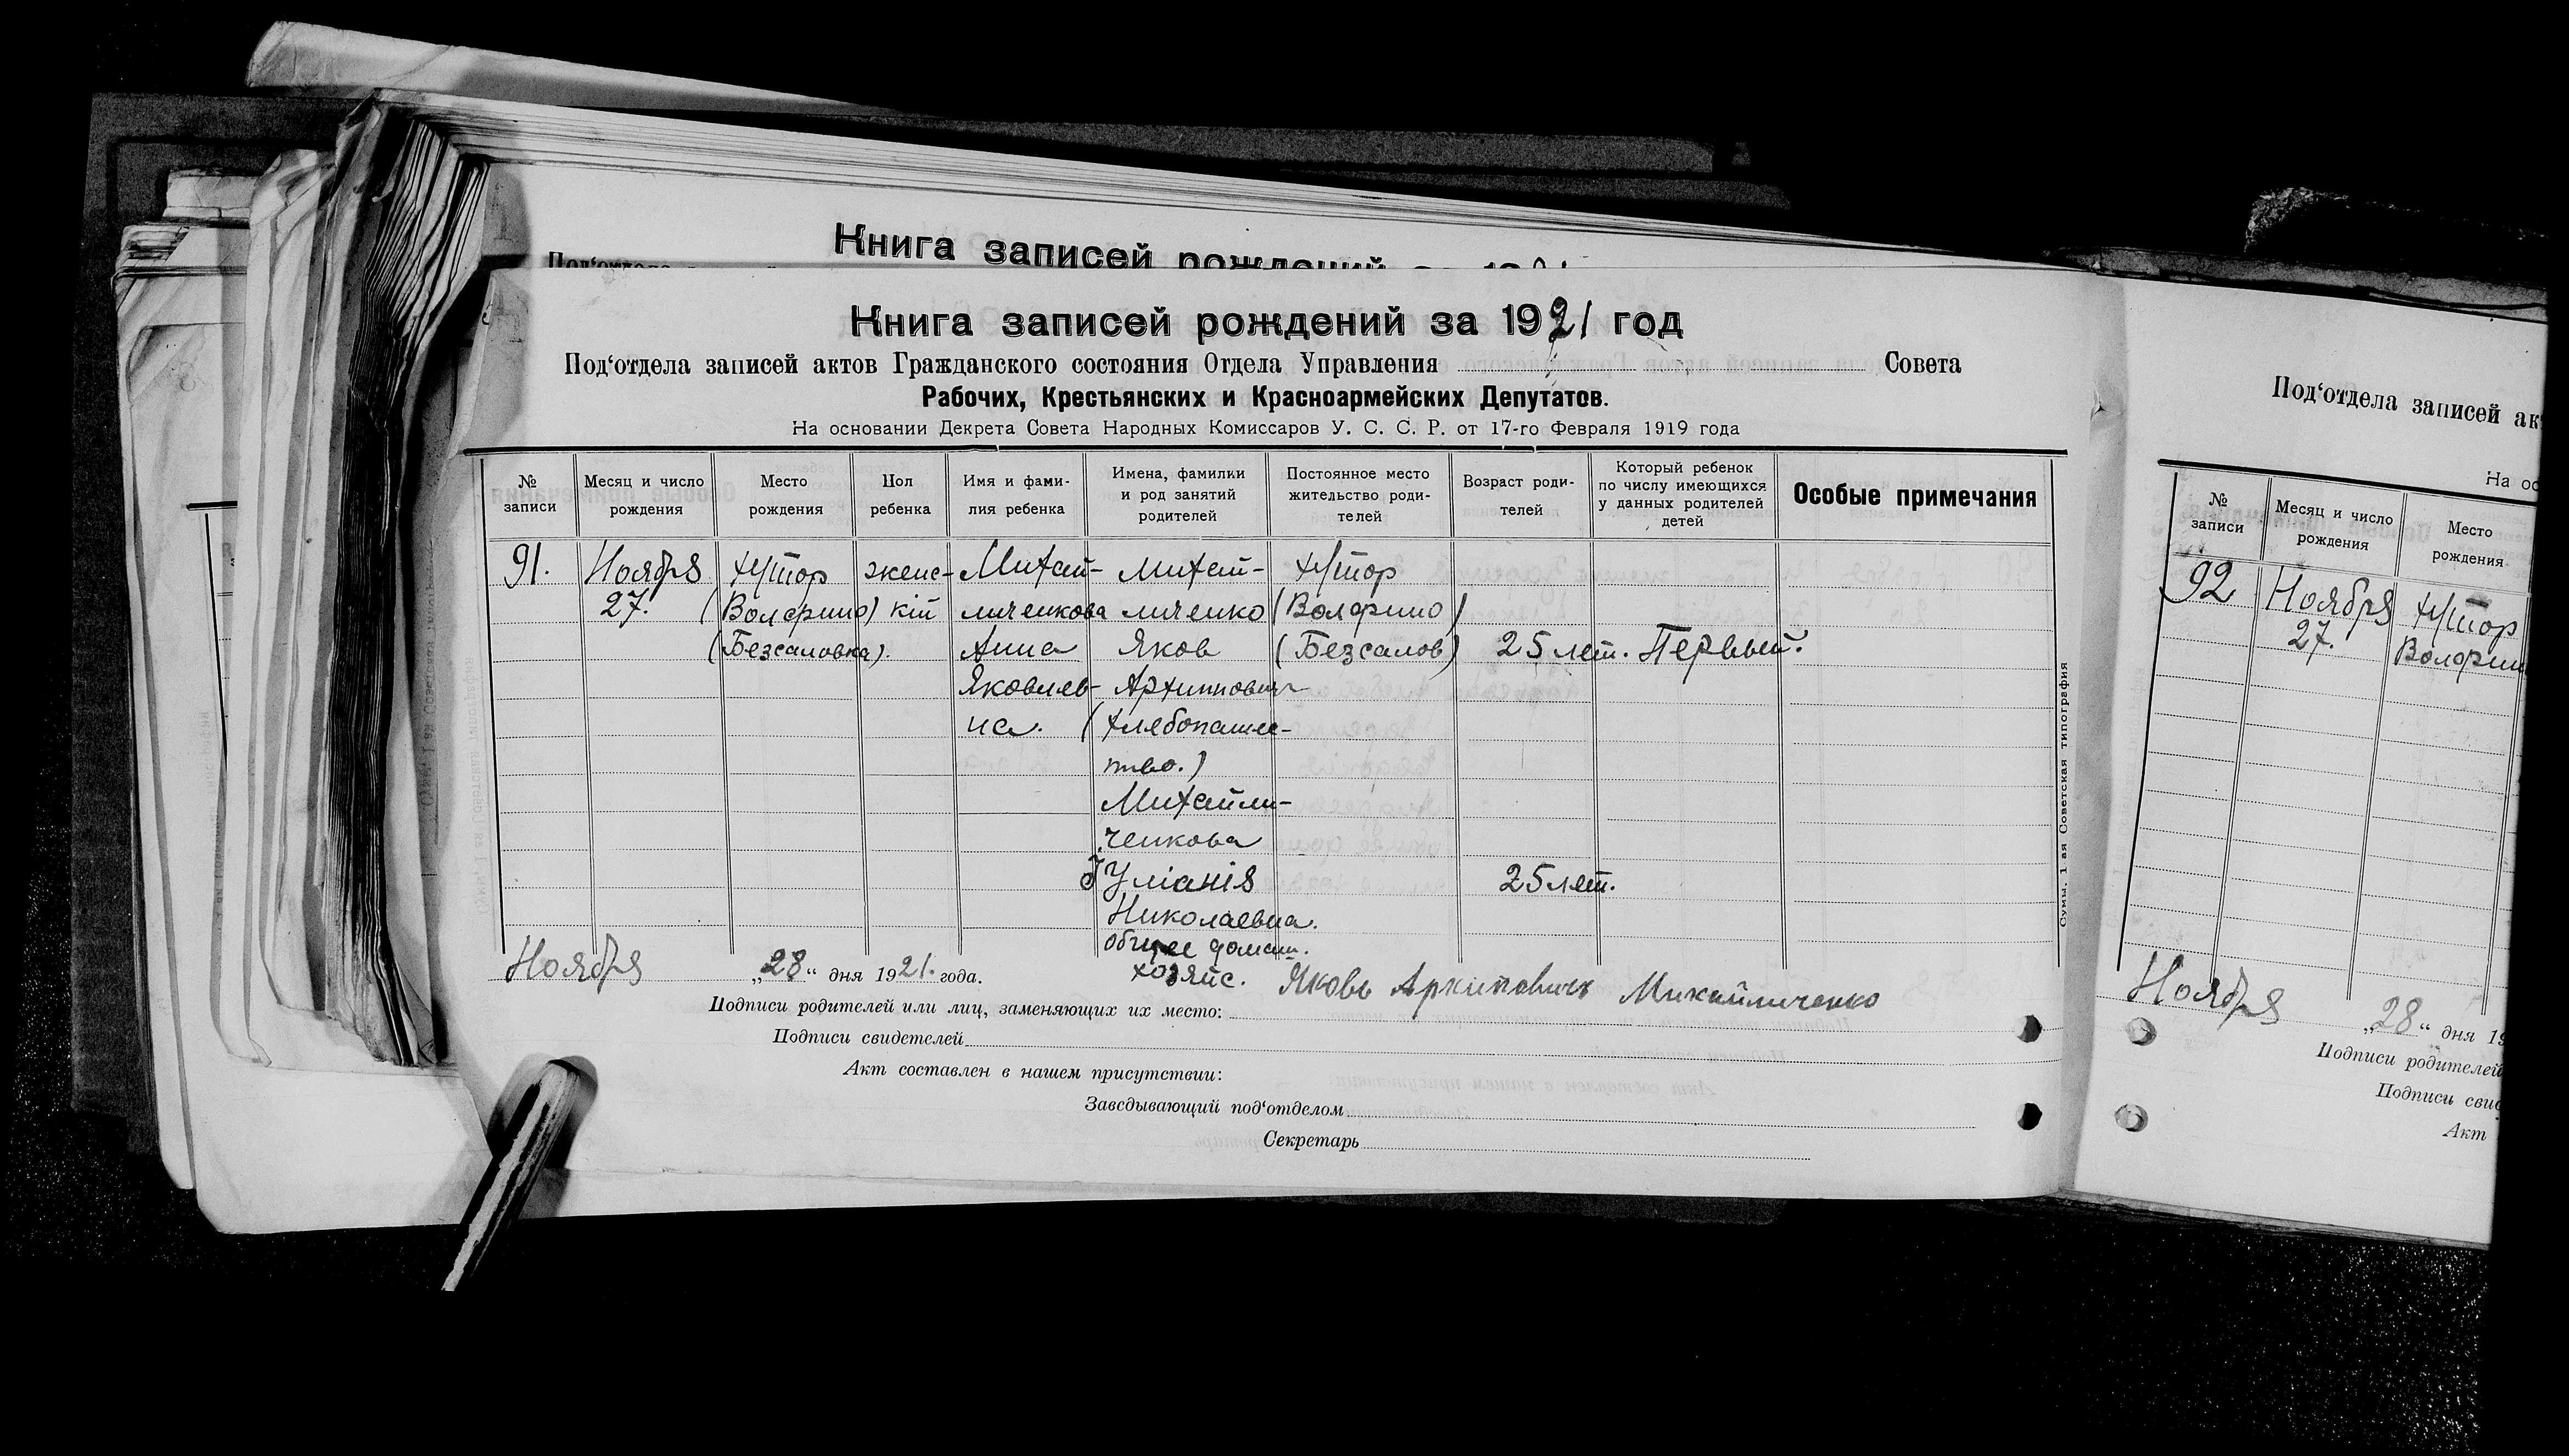 Книга записей рождений
Книга записей рождений за 1921 год
Под‘отдела записей актов Гражданского состояния Отдела Управления Совета
Рабочих, Крестьянских и Красноармейских Депутатов.
На основании Декрета Совета Народных Комиссаров У. С. С. Р. от 17-го Февраля 1919 года
№ записи
Месяц и число рождения
Место рождения
Пол ребенка
Имя и фами-
лия ребенка
Имена, фамилки
и род занятий
родителей
Постоянное место
жительство роди-
телей
Возраст роди-
телей
Который ребенок
по числу имеющихся
у данных родителей
детей
Особые примечания
91.
Ноября
27.
хутор
(Волфрино)
(Безсаловка).
женс-
кій
Михай-
личенкова
Анна
Яковлев-
на.
Михай-
личенко
Яков
Архиппович
(хлебопашес-
тво.)
Михайли-
ченкова
Іуліанія
Николаевна.
общее домаш.
хозяйс.
хутор
(Волфрино)
(Безсалов)
25 лет.
25 лет.
Первый.
Ноября „28“ дня 1921. года.
Яковъ Архиповичъ Михайличенко
Подписи родителей или лиц, заменяющих их место:
Подписи свидетелей
Акт составлен в нашем присутствии:
Заведывающий под‘отделом
Секретарь
Сумы. 1 ая Советская типография
Под‘отдела записей ак
На ос
№ записи
Месяц и число
рождения
Место
рождения
92
Ноября
27.
хутор
Волфрин
Ноября „28“ дня 19
Подписи родителей
Подписи свид
Акт